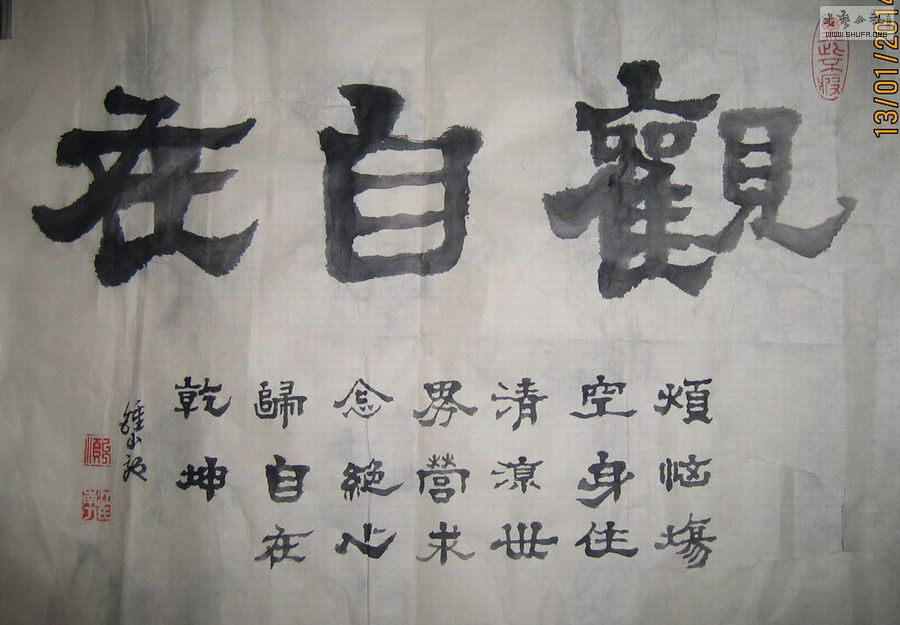 觀自在
煩恼場
空身住
清凉世
界營求
念絕心
歸自在
乾坤
WWW.SHUFA.ORG
13/01/2014